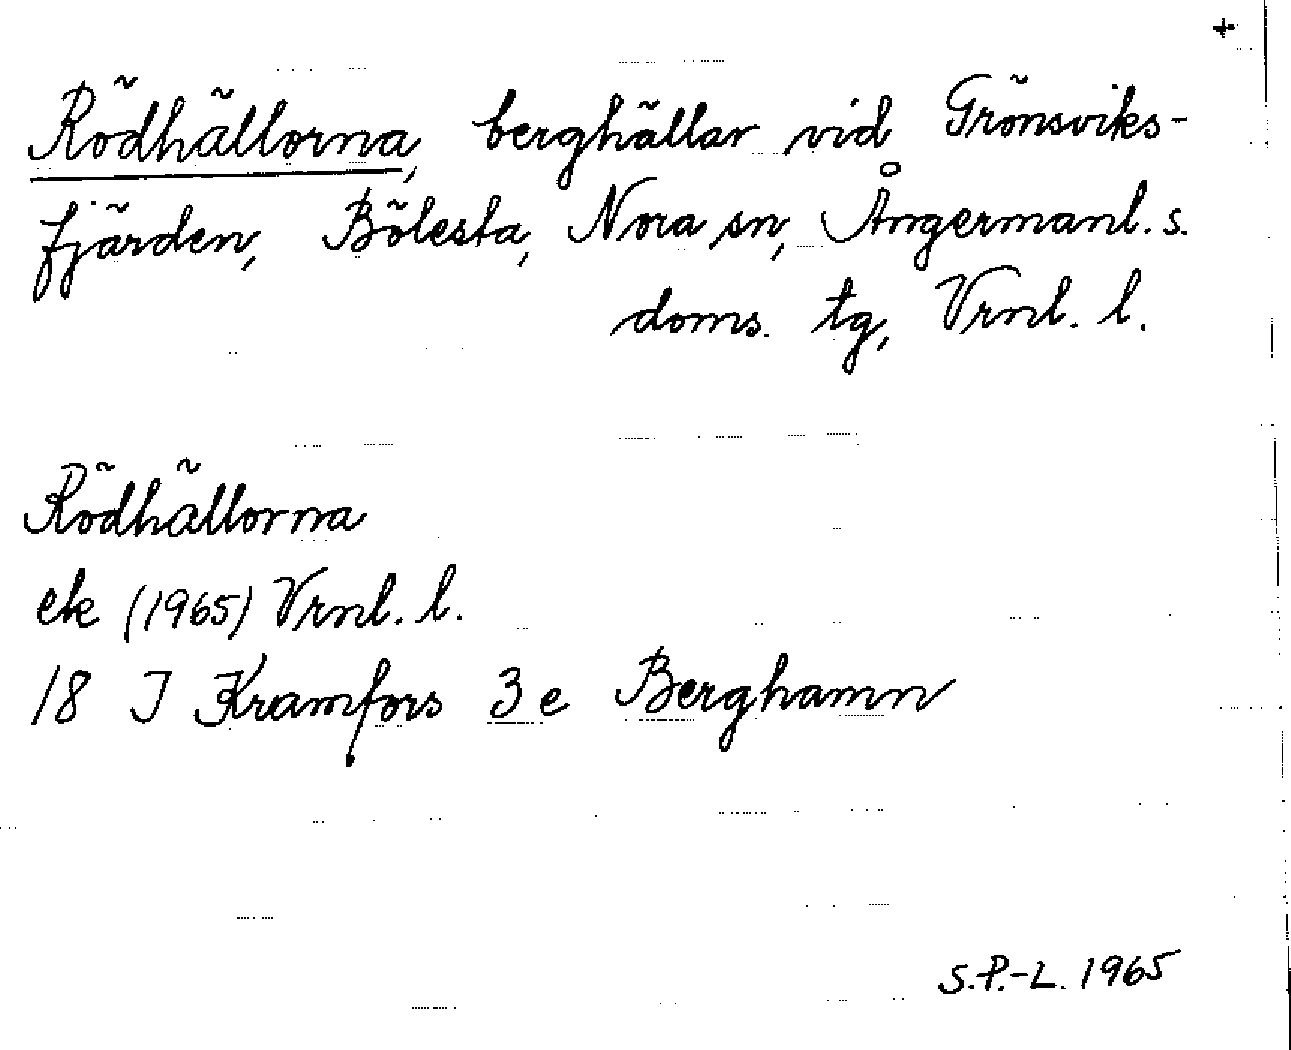 +
Rödhällorna, berghällar vid Grönsviks-
fjärden, Bölesta, Nora sn, Ångermanl. s.
doms. tg, Vrnl. l.
Rödhällorna
ek (1965) Vrnl. l.
18 J Kramfors 3 e Berghamn
S.P.-L. 1965